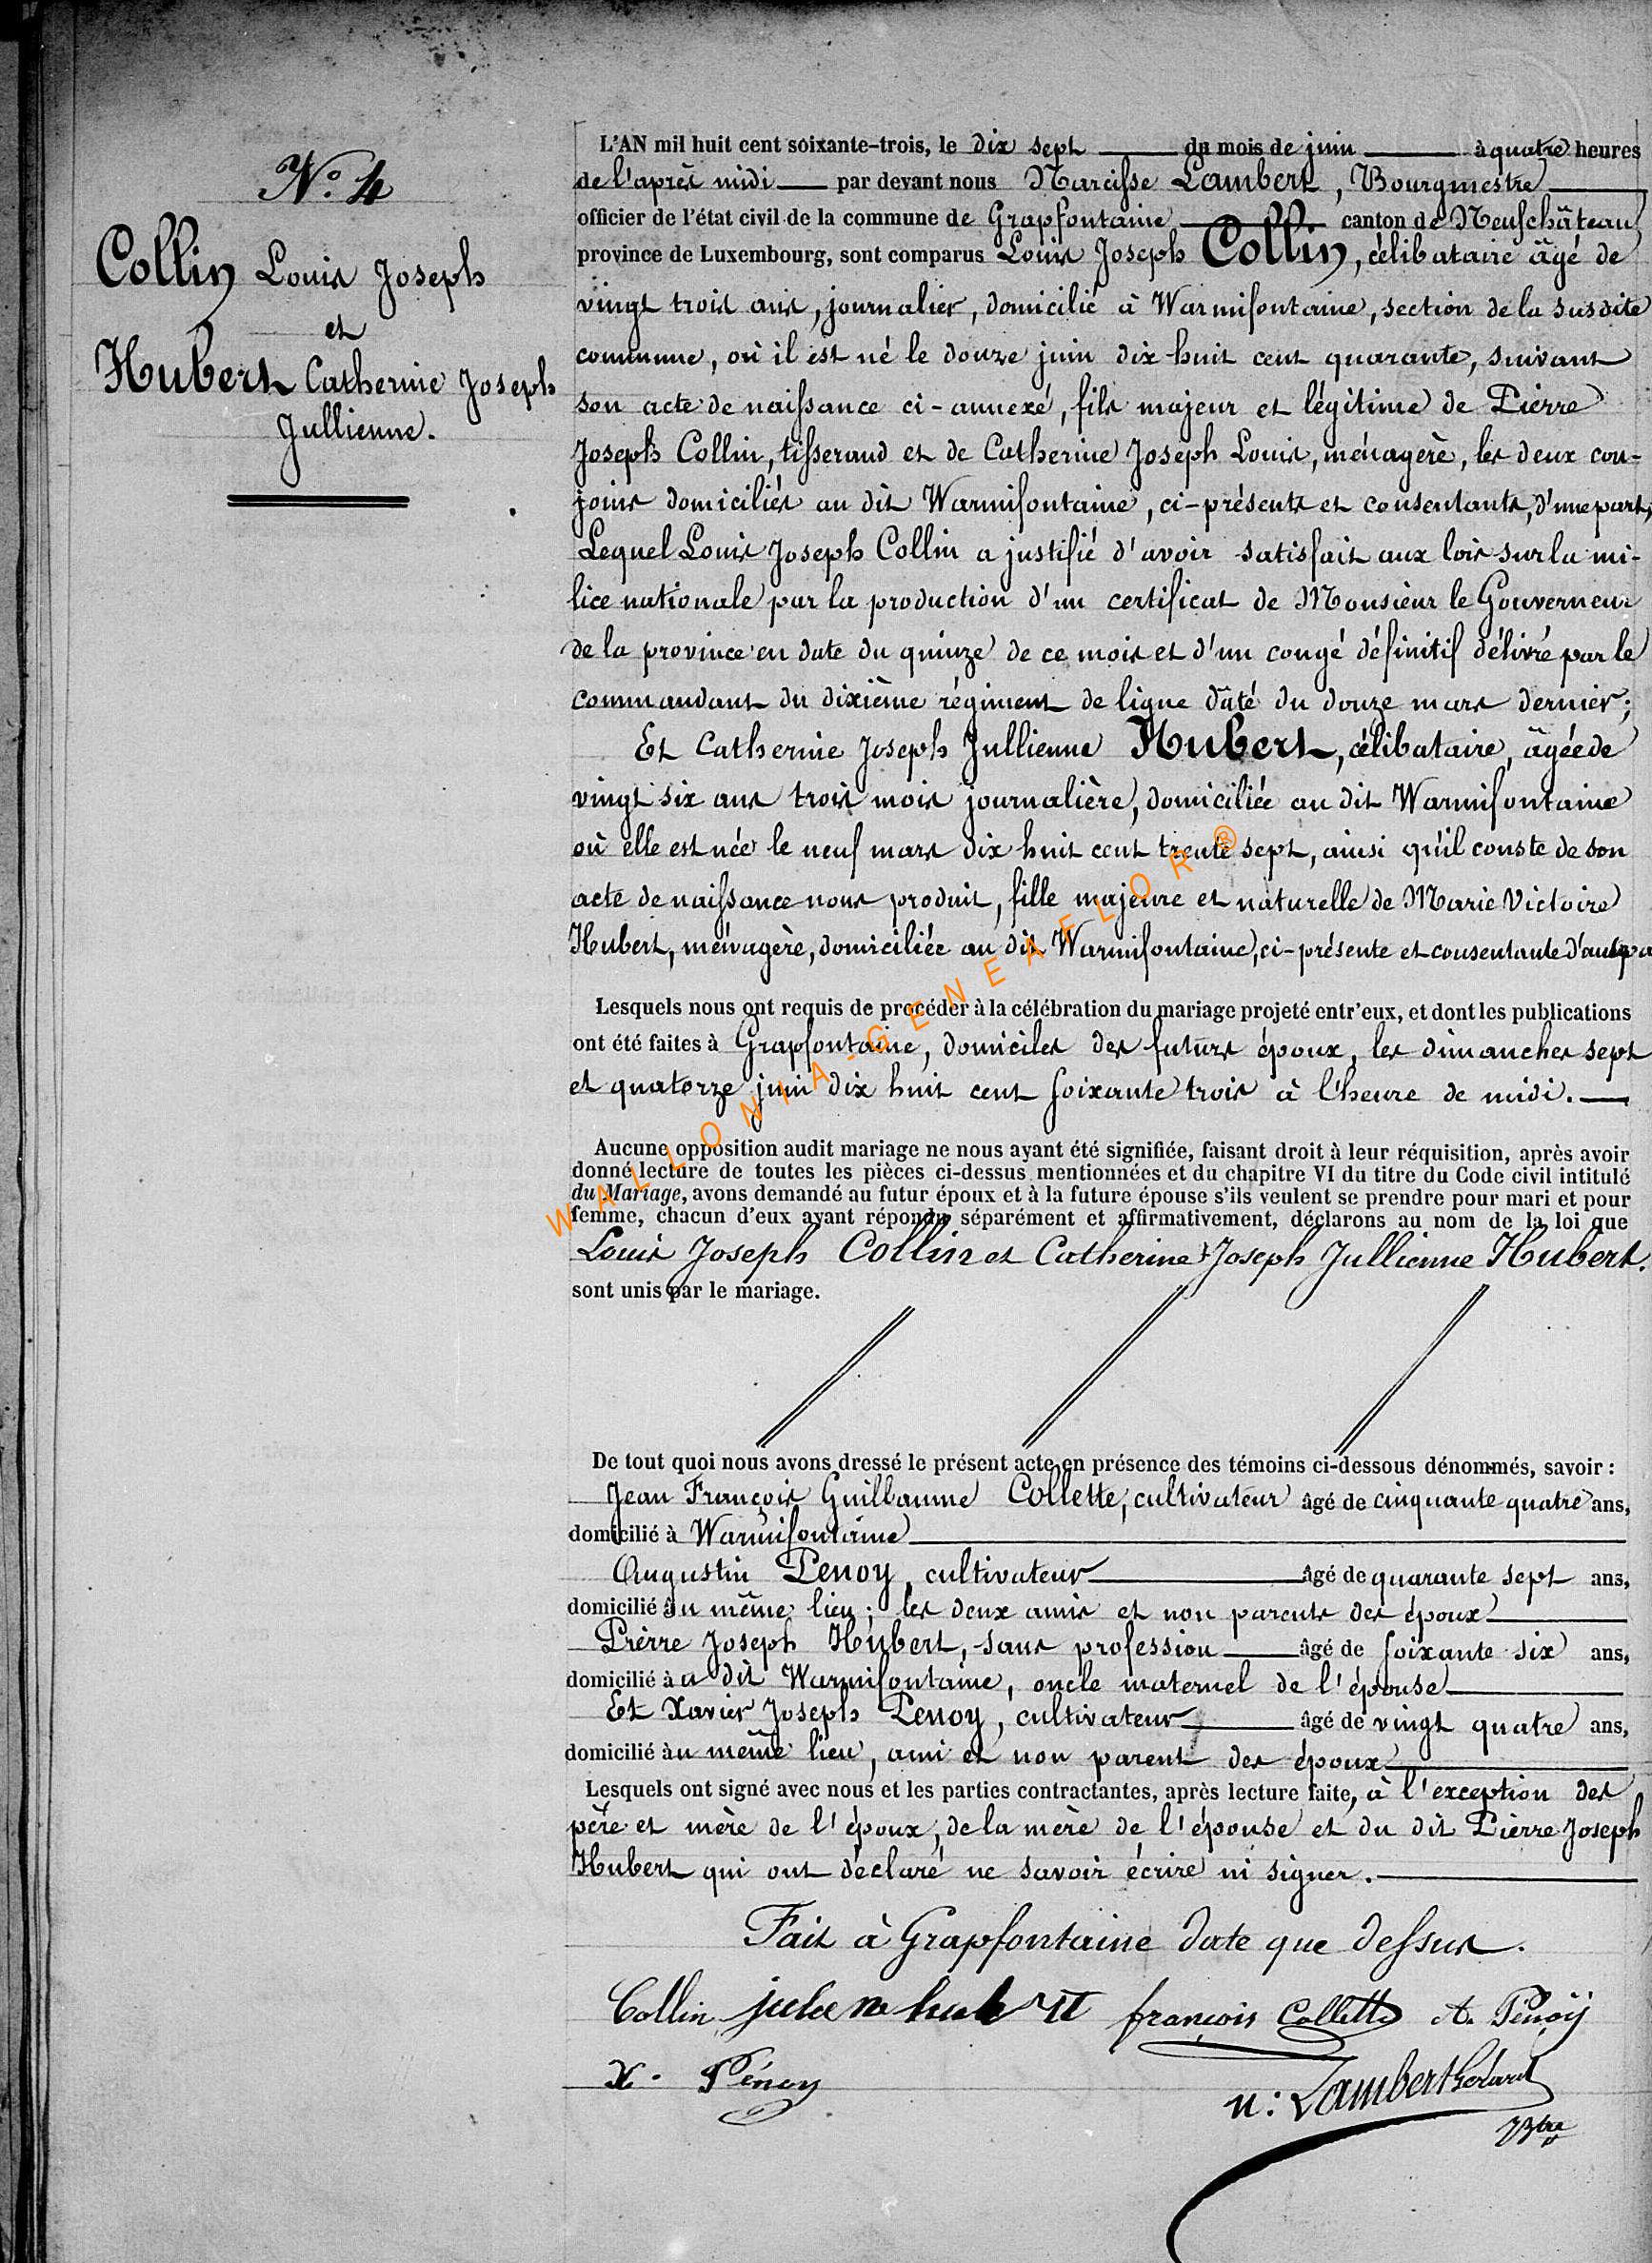 N.° 4
Collin Louis Joseph
et
Hubert Catherine Joseph
Jullienne.
L'AN mil huit cent soixante-trois, le dix sept du mois de juin à quatre heures
de l'après midi par devant nous Narcisse Lambert, Bourgmestre
officier de l'état civil de la commune de Grapfontaine canton de Neufchâteau
province de Luxembourg, sont comparus Louis Joseph Collin, célibataire âgé de
vingt trois ans, journalier, domicilié à Warmifontaine, section de la susdite
commune, où il est né le douze juin dix huit cent quarante, suivant
son acte de naissance ci-annexé, fils majeur et légitime de Pierre
Joseph Collin, tisserand et de Catherine Joseph Louis, ménagère, les deux con-
joins domiciliés au dit Warmifontaine, ci-présents et consentants, d'une part,
Lequel Louis Joseph Collin a justifié d'avoir satisfait aux lois sur la mi-
lice nationale par la production d'un certificat de Monsieur le Gouverneur
de la province en date du quinze de ce mois et d'un congé définitif délivré par le
commandant du dixième régiment de ligne daté du douze mars dernier;
Et Catherine Joseph Jullienne Hubert, célibataire, âgée de
vingt six ans trois mois journalière, domiciliée au dit Warmifontaine
où elle est née le neuf mars dix huit cent trente sept, ainsi qu'il conste de son
acte de naissance nous produit, fille majeure et naturelle de Marie Victoire
Hubert, ménagère, domiciliée au dit Warmifontaine, ci-présente et consentante
Lesquels nous ont requis de procéder à la célébration du mariage projeté entr'eux, et dont les publications
ont été faites à Grapfontaine, domiciles des futurs époux, les dimanches sept
et quatorze juin dix huit cent soixante trois à l'heure de midi.
Aucune opposition audit mariage ne nous ayant été signifiée, faisant droit à leur réquisition, après avoir
donné lecture de toutes les pièces ci-dessus mentionnées et du chapitre VI du titre du Code civil intitulé
du Mariage, avons demandé au futur époux et à la future épouse s'ils veulent se prendre pour mari et pour
femme, chacun d'eux ayant répondu séparément et affirmativement, déclarons au nom de la loi que
Louis Joseph Collin et Catherine Joseph Jullienne Hubert.
sont unis par le mariage.
De tout quoi nous avons dressé le présent acte en présence des témoins ci-dessous dénommés, savoir :
Jean François Guillaume Collette, cultivateur âgé de cinquante quatre ans,
domicilié à Warmifontaine
Augustin Penoy, cultivateur âgé de quarante sept ans,
domicilié au même lieu; les deux amis et non parents des époux
Pierre Joseph Hubert, sans profession âgé de soixante six ans,
domicilié à u dit Warmifontaine, oncle maternel de l'épouse
Et Xavier Joseph Penoy, cultivateur âgé de vingt quatre ans,
domicilié àu même lieu, ami et non parent des époux
Lesquels ont signé avec nous et les parties contractantes, après lecture faite, à l'exception des
père et mère de l'époux, de la mère de l'épouse et du dit Pierre Joseph
Hubert qui ont déclaré ne savoir écrire ni signer.
Fait à Grapfontaine date que dessus.
Collin françois Collette A. Penoÿ
X. Pénoy
n: Lambert
WALLONIA-GENEAFLOR®